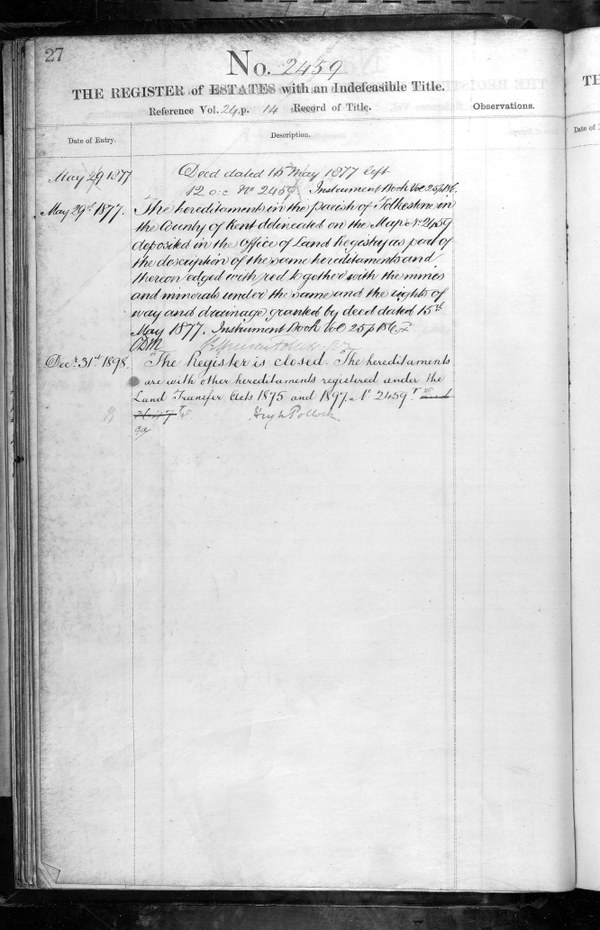 27
No. 2459
THE REGISTER of ESTATES with an Indefeasible Title.
Reference Vol. 24 p. 14 Record of Title.
Observations.
Date of Entry.
Description.
May 29 1877
Deed dated 15th May 1877 left
12 o:c No 2459. Instrument Book Vol 25 p 186.
May 29th 1877.
The hereditaments in the parish of Folkestone in
the County of Kent delineated on the Map No 2459
deposited in the Office of Land Registry as part of
the description of the same hereditaments and
thereon edged with red together with the mines
and minerals under the same and the rights of
way and drainage granted by deed dated 15th
May 1877. Instrument Book Vol 25 p 186.
Dec. 31st 1898.
The Register is closed. The hereditaments
are with other hereditaments registered under the
Land Transfer Acts 1875 and 1897. No 2459
Hugh Pollock
TH
Date of